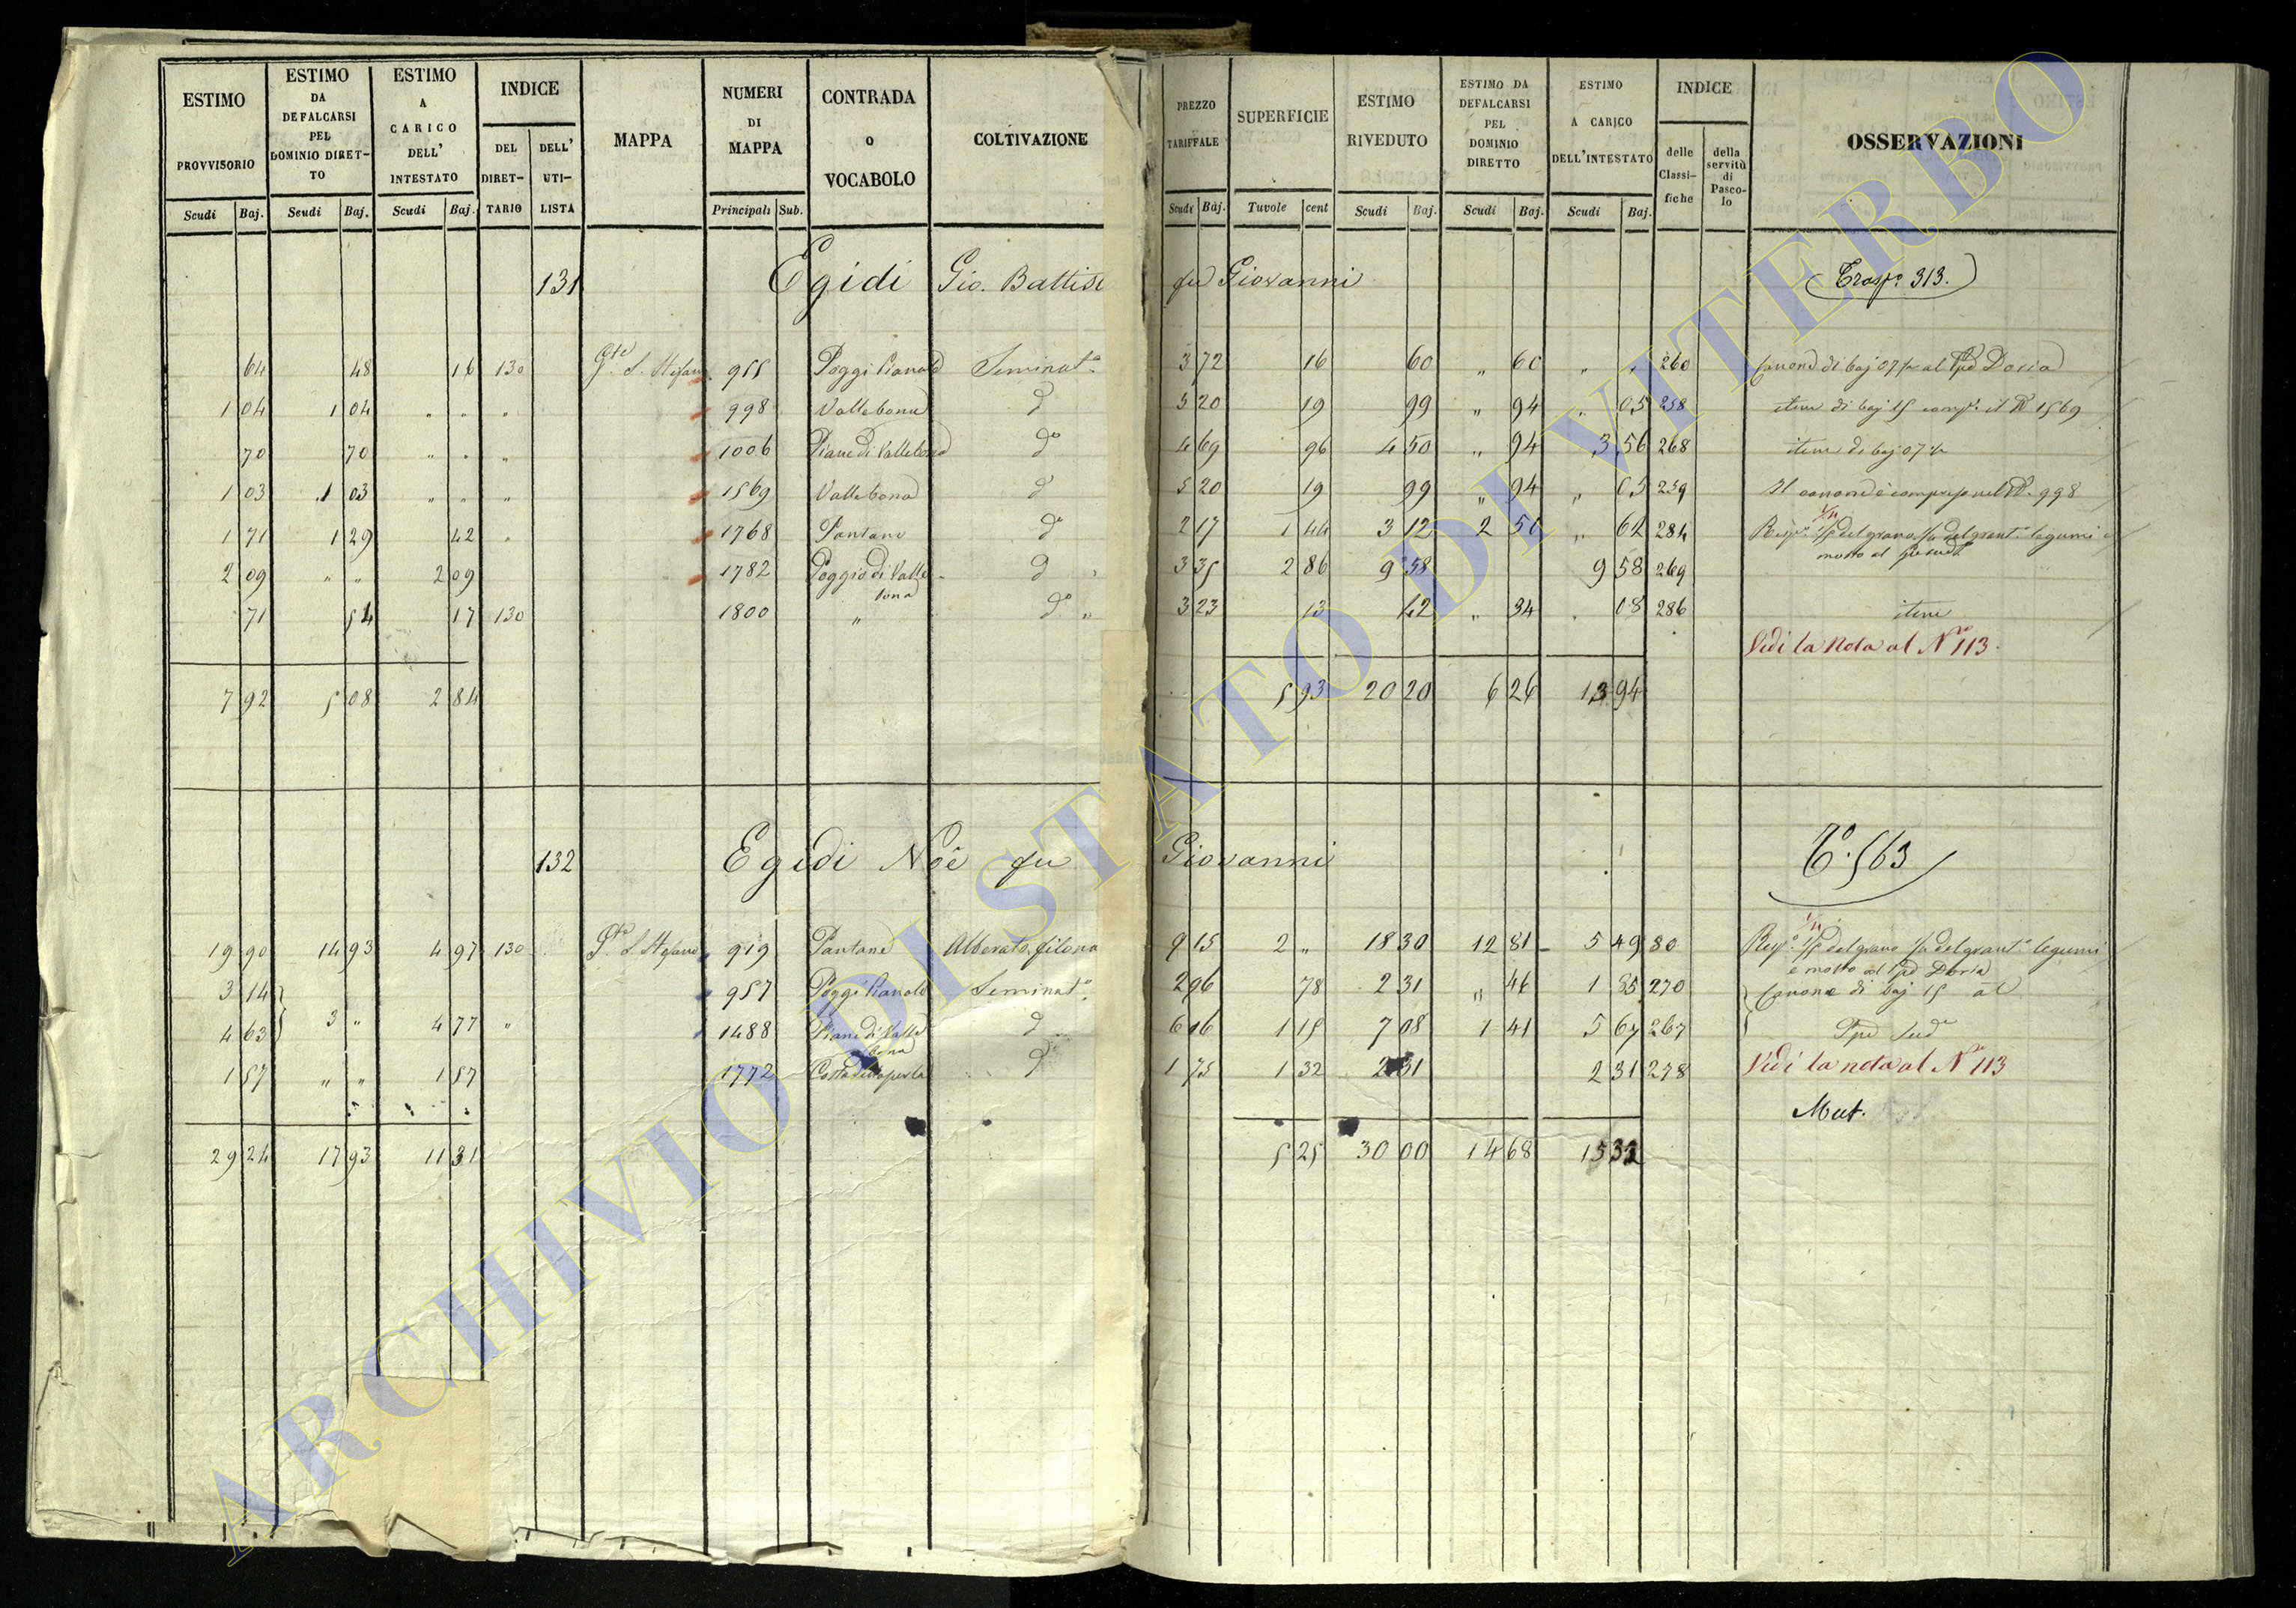 ESTIMO PROVVISORIO | ESTIMO DA DEFALCARSI PEL DOMINIO DIRET-TO | ESTIMO A CARICO DELL' INTESTATO | INDICE | MAPPA | NUMERI DI MAPPA | CONTRADA O VOCABOLO | COLTIVAZIONE | PREZZO TARIFFALE | SUPERFICIE | ESTIMO RIVEDUTO | ESTIMO DA DEFALCARSI PEL DOMINIO DIRETTO | ESTIMO A CARICO DELL'INTESTATO | INDICE | OSSERVAZIONI
DEL DIRET-TARIO | DELL' UTI-LISTA | delle Classi-fiche | della servitù di Pasco-lo
Scudi | Baj. | Scudi | Baj. | Scudi | Baj. | Principali | Sub. | Scudi | Baj. | Tavole | cent | Scudi | Baj. | Scudi | Baj. | Scudi | Baj.
131 Egidi Gio. Battist fu Giovanni Trasp.o 313.
64 | 48 | 16 | 130 | S. Stefano | 955 | Poggi Pianali | Seminat.o | 3 72 | 16 | 60 | " 60 | " " | 260 | Canone di baj 07 1/2 al Ppe Doria
1 04 | 1 04 | " " | " | 998 | Vallebona | d | 5 20 | 19 | 99 | " 94 | " 05 | 258 | item di baj 15 comp.o il N 1569
70 | 70 | " " | " | 1006 | Piane di Vallebona | do | 4 69 | 96 | 4 50 | " 94 | 3 56 | 268 | item di baj 07 1/2
1 03 | 1 03 | " " | " | 1569 | Vallebona | d | 5 20 | 19 | 99 | " 94 | " 05 | 259 | Il canone è compreso nel N. 998
1 71 | 1 29 | 42 | " | 1768 | Pantane | do | 2 17 | 1 44 | 3 12 | 2 50 | " 62 | 284 | Risp.a 1/5 del grano 1/4 del grant.o legumi e
mosto al
2 09 | " " | 2 09 | 1782 | Poggio di Valle-bona | d | 3 35 | 2 86 | 9 58 | 9 58 | 269
71 | 54 | 17 | 130 | 1800 | " | do " | 3 23 | 13 | 42 | " 34 | 08 | 286 | item
Vedi la Nota al No 113.
7 92 | 5 08 | 2 84 | 5 93 | 20 20 | 6 26 | 13 94
132 Egidi Noè fu Giovanni To. 563
19 90 | 14 93 | 4 97 | 130 | S. Stefano | 919 | Pantane | Alberato, filona | 9 15 | 2 " | 18 30 | 12 81 | 5 49 | 80 | Risp.a 1/5 del grano 1/4 del grant.o legumi
e mosto al Ppe Doria
3 14 | 957 | Poggi Pianali | Seminat.o | 2 96 | 78 | 2 31 | " 46 | 1 85 | 270 | Canone di baj 15 al
4 63 | 3 " | 4 77 | " | 1488 | Piane di Valle bona | d | 6 16 | 1 15 | 7 08 | 1 41 | 5 67 | 267 | Ppe Sud.o
1 57 | " " | 1 57 | 1772 | d | 1 75 | 1 32 | 2 31 | 2 31 | 278 | Vedi la nota al No 113
Mut.
29 24 | 17 93 | 11 31 | 5 25 | 30 00 | 14 68 | 15 32
ARCHIVIO DI STATO DI VITERBO